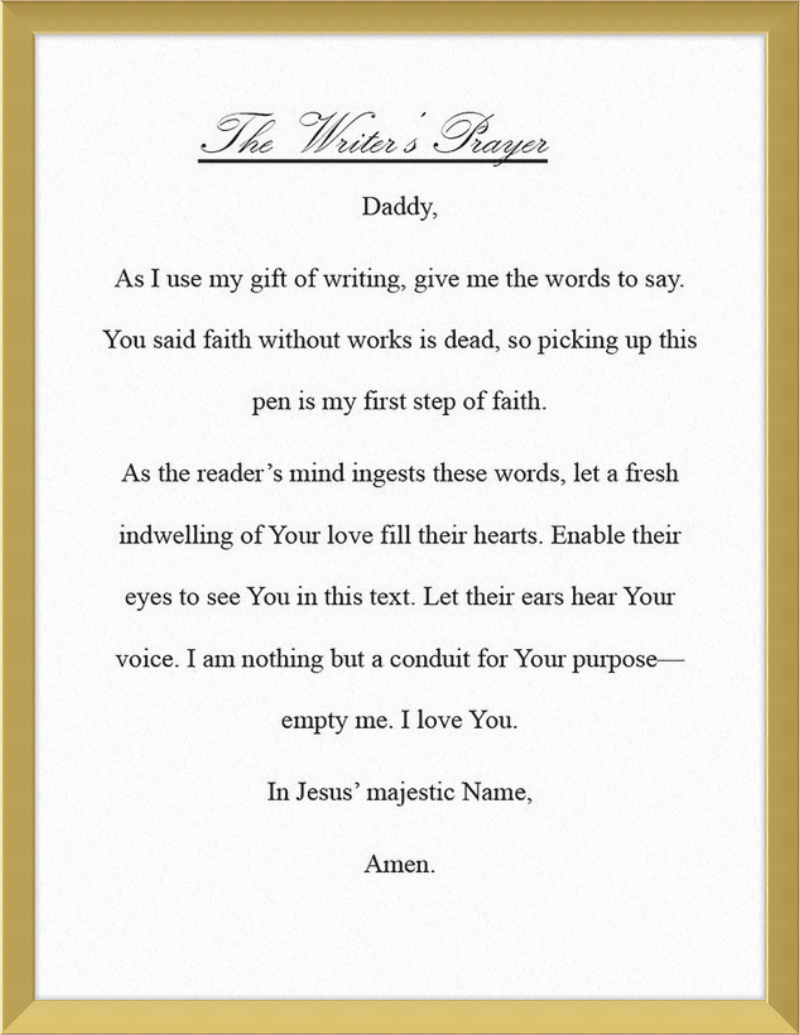 The Writer's Prayer
Daddy,
As I use my gift of writing, give me the words to say.
You said faith without works is dead, so picking up this
pen is my first step of faith.
As the reader’s mind ingests these words, let a fresh
indwelling of Your love fill their hearts. Enable their
eyes to see You in this text. Let their ears hear Your
voice. I am nothing but a conduit for Your purpose—
empty me. I love You.
In Jesus’ majestic Name,
Amen.